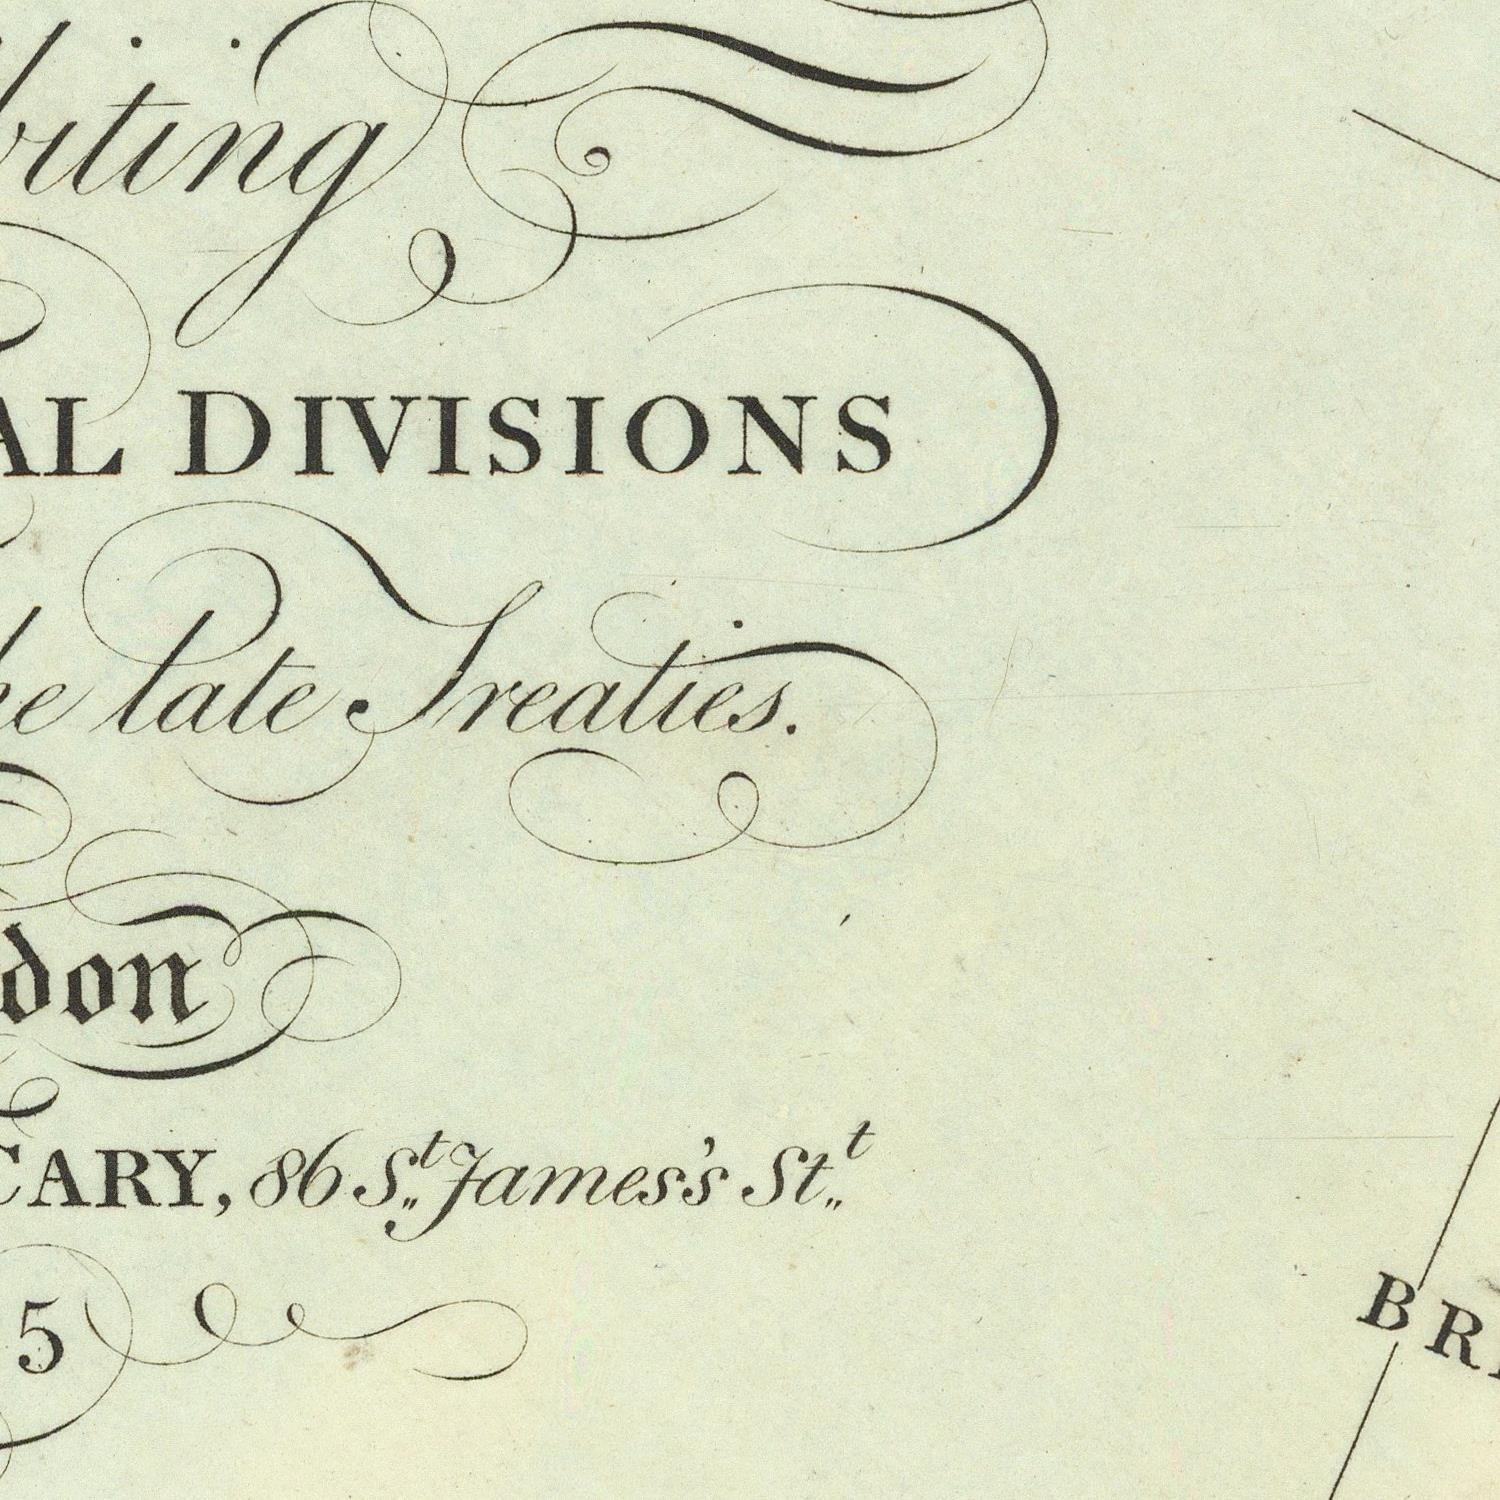 biting
AL DIVISIONS
he late Treaties.
don
CARY, 86 St. James's St.t
5
BR